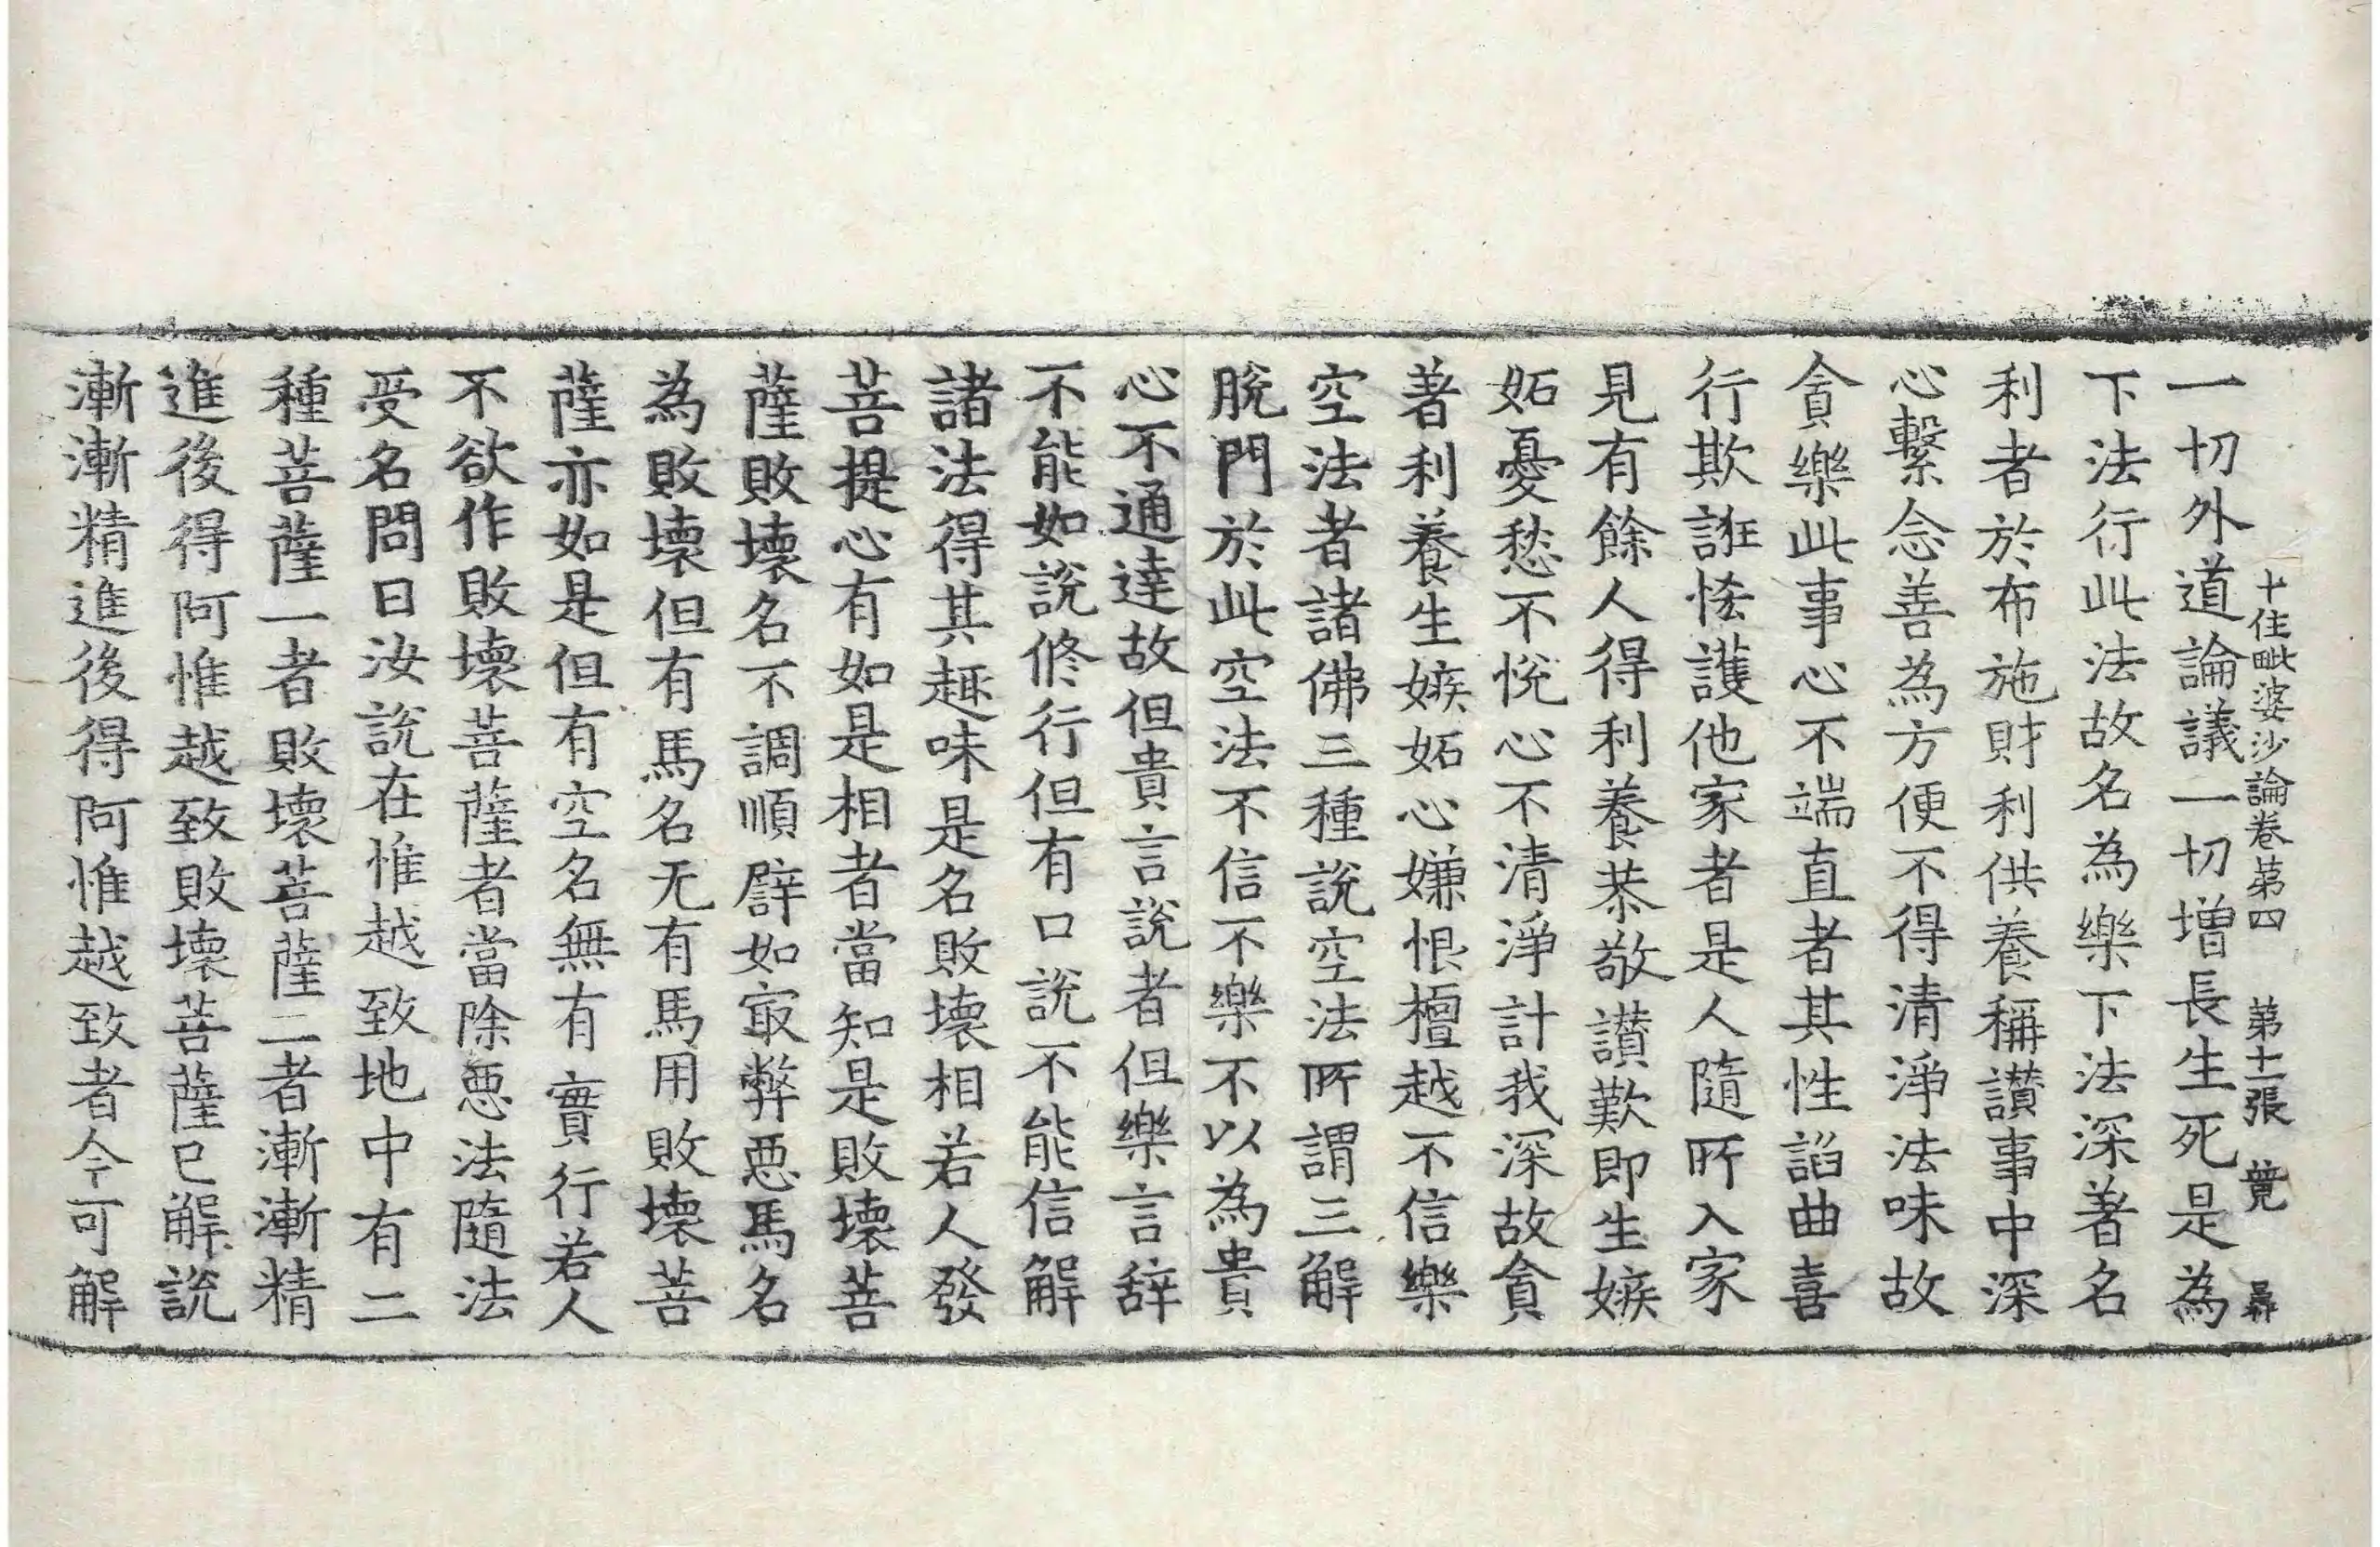 十住毗婆沙論卷苐四　苐十一張　竟　㝵
一切外道論議一切增長生死是為
下法行此法故名為樂下法深著名
利者於布施財利供養稱讃事中深
心繫念善為方便不得清淨法味故
貪樂此事心不端直者其性謟曲喜
行欺誑恡護他家者是人隨所入家
見有餘人得利養恭敬讃歎即生嫉
妬憂愁不恱心不清淨計我深故貪
著利養生嫉妬心嫌恨檀越不信樂
空法者諸佛三種說空法所謂三解
脫門於此空法不信不樂不以為貴
心不通達故但貴言說者但樂言辝
不能如說修行但有口說不能信解
諸法得其趣味是名敗壞相若人發
菩提心有如是相者當知是敗壞菩
薩敗壞名不調順辟如㝡弊惡馬名
為敗壞但有馬名无有馬用敗壞菩
薩亦如是但有空名無有實行若人
不欲作敗壞菩薩者當除惡法隨法
受名問曰汝說在惟越致地中有二
種菩薩一者敗壞菩薩二者漸漸精
進後得阿惟越致敗壞菩薩已解說
漸漸精進後得阿惟越致者今可解